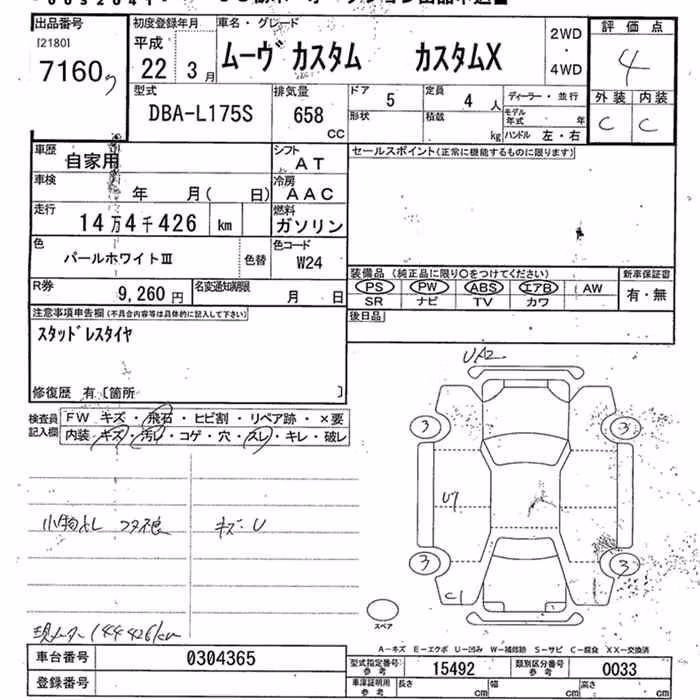 出品番号 初度登録年月 車名・グレード 評価点
[2180] 平成 ムーヴ カスタム カスタムX 2WD 4
7160 22 3月 4WD
型式 排気量 ドア 5 定員 4人 ディーラー・並行 外装 内装
DBA-L175S 658 CC 形状 積載 kg モデル年式 年 C C
ハンドル 左・右
車歴 自家用 シフト AT セールスポイント(正常に機能するものに限ります)
車検 年 月( 日) 冷房 AAC
走行 14万4千426 km 燃料 ガソリン
色 パールホワイトⅢ 色替 色コード W24
R券 9,260円 名変通知期限 月 日
装備品 (純正品に限り○をつけてください) 新車保証書
PS PW ABS エアB AW 有・無
SR ナビ TV カワ
注意事項申告欄(不具合内容等は具体的に記入して下さい) 後日品
スタッドレスタイヤ
修復歴 有〔箇所 〕
検査員記入欄 FW キズ・飛石・ヒビ割・リペア跡・×要
内装・キズ・汚レ・コゲ・穴・スレ・キレ・破レ
UA2
3 3
U7
小物ナシ フタ不良 キズ・U
3 3
C1
スペア
現メーター144426km
A-キズ E-エクボ U-凹み W-補修跡 S-サビ C-腐食 XX-交換済
車台番号 0304365 型式指定番号 参考 15492 類別区分番号 参考 0033
登録番号 車庫証明用 参考 長さ cm 幅 cm 高さ cm